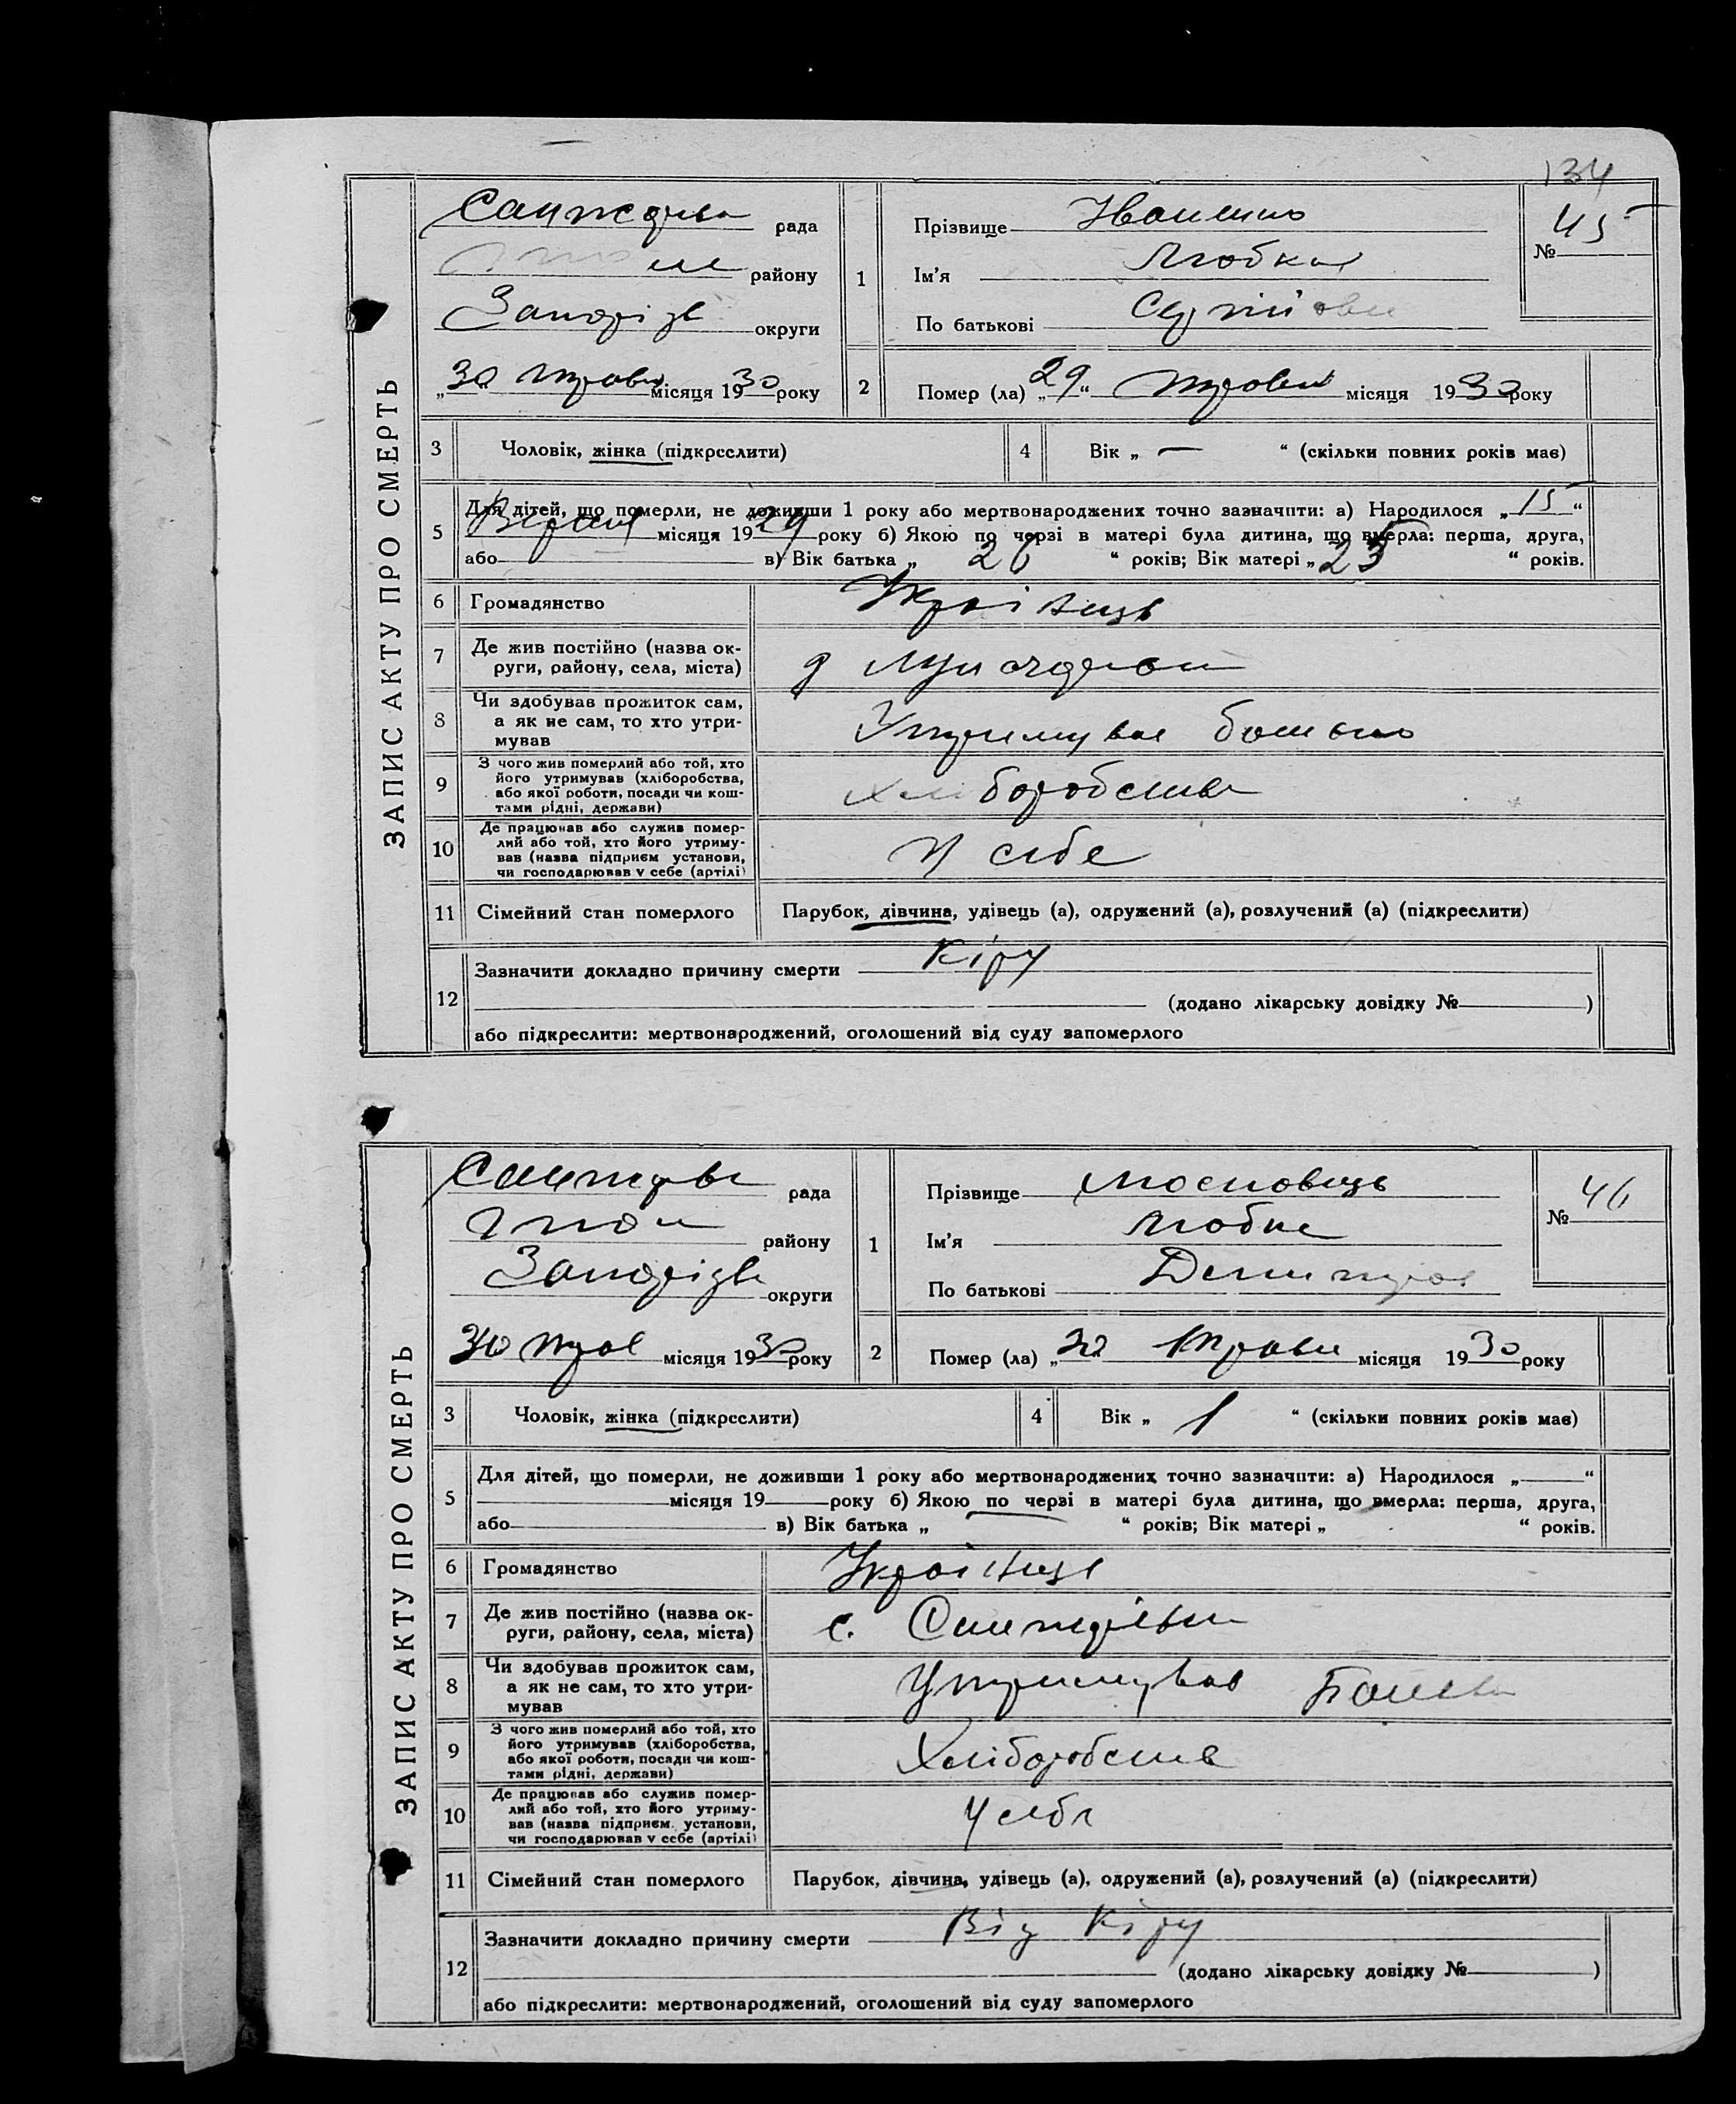 134
ЗАПИС АКТУ ПРО СМЕРТЬ
рада
району
округи
„30 травня місяця 1930 року
1
Прізвище
Ім'я Любка
По батькові
№ 45
2
Помер (ла) „29“ травня місяця 1930 року
3 Чоловік, жінка (підкреслити)
4 Вік „ — “ (скільки повних років має)
5
Для дітей, що померли, не доживши 1 року або мертвонароджених точно зазначити: а) Народилося „15“
Вересня місяця 1929 року б) Якою по черзі в матері була дитина, що вмерла: перша, друга,
або в) Вік батька „ 26 “ років; Вік матері „ 25 “ років.
6 Громадянство Українець
7 Де жив постійно (назва ок-
руги, району, села, міста)
8 Чи здобував прожиток сам,
а як не сам, то хто утри-
мував
Утримував батько
9 З чого жив померлий або той, хто
його утримував (хліборобства,
або якої роботи, посади чи кош-
тами рідні, держави)
Хліборобства
10 Де працював або служив помер-
лий або той, хто його утриму-
вав (назва підприєм установи,
чи господарював у себе (артілі)
У себе
11 Сімейний стан померлого Парубок, дівчина, удівець (а), одружений (а), розлучений (а) (підкреслити)
12
Зазначити докладно причину смерти Кіру
(додано лікарську довідку № )
або підкреслити: мертвонароджений, оголошений від суду запомерлого
ЗАПИС АКТУ ПРО СМЕРТЬ
рада
району
округи
30 трав місяця 1930 року
1
Прізвище Московець
Ім'я Любка
По батькові
№ 46
2
Помер (ла) „30 травня місяця 1930 року
3 Чоловік, жінка (підкреслити)
4 Вік „ 1 “ (скільки повних років має)
5
Для дітей, що померли, не доживши 1 року або мертвонароджених точно зазначити: а) Народилося „ “
місяця 19 року б) Якою по черзі в матері була дитина, що вмерла: перша, друга,
або в) Вік батька „ “ років; Вік матері „ “ років.
6 Громадянство Українець
7 Де жив постійно (назва ок-
руги, району, села, міста)
с.
8 Чи здобував прожиток сам,
а як не сам, то хто утри-
мував
Утримував
9 З чого жив померлий або той, хто
його утримував (хліборобства,
або якої роботи, посади чи кош-
тами рідні, держави)
Хліборобств
10 Де працював або служив помер-
лий або той, хто його утриму-
вав (назва підприєм. установи,
чи господарював у себе (артілі)
У себе
11 Сімейний стан померлого Парубок, дівчина, удівець (а), одружений (а), розлучений (а) (підкреслити)
12
Зазначити докладно причину смерти Від Кіру
(додано лікарську довідку № )
або підкреслити: мертвонароджений, оголошений від суду запомерлого